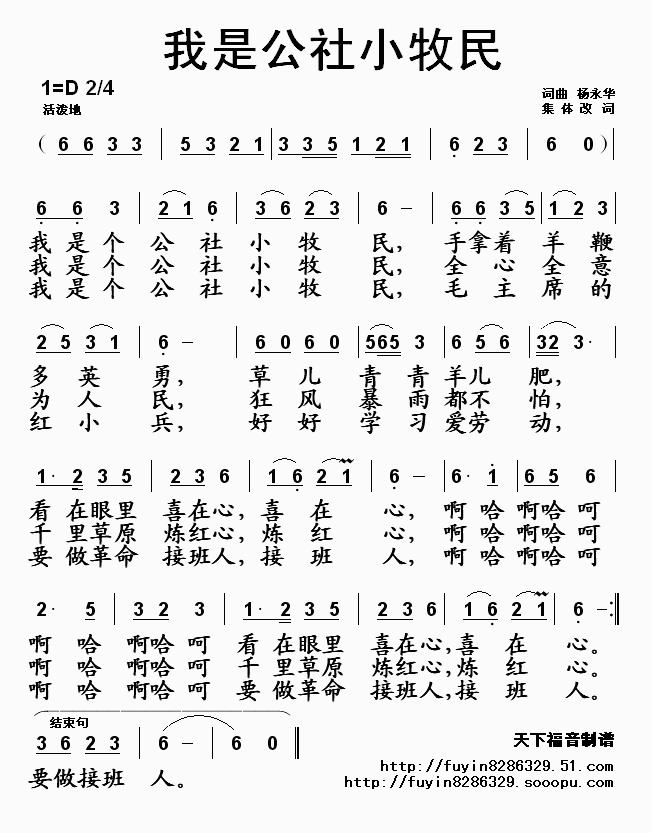 我是公社小牧民
1=D 2/4
词曲 杨永华
活泼地
集体改词
( 6 6 3 3 | 5 3 2 1 | 3 3 5 1 2 1 | 6 2 3 | 6 0 )
6 6 3 | 2 1 6 | 3 6 2 3 | 6 － | 6 6 3 5 | 1 2 3
我是个 公 社 小 牧 民, 手拿着 羊 鞭
我是个 公 社 小 牧 民, 全 心 全 意
我是个 公 社 小 牧 民, 毛 主 席 的
2 5 3 1 | 6 － | 6 0 6 0 | 5 6 5 3 | 6 5 6 | 3 2 3·
多 英 勇, 草 儿 青 青 羊儿 肥,
为 人 民, 狂 风 暴 雨 都不 怕,
红 小 兵, 好 好 学 习 爱劳 动,
1· 2 3 5 | 2 3 6 | 1 6 2 1 | 6 － | 6· 1 | 6 5 6
看 在眼里 喜在心, 喜 在 心, 啊 哈 啊哈 呵
千 里草原 炼红心, 炼 红 心, 啊 哈 啊哈 呵
要 做革命 接班人, 接 班 人, 啊 哈 啊哈 呵
2· 5 | 3 2 3 | 1· 2 3 5 | 2 3 6 | 1 6 2 1 | 6 － :||
啊 哈 啊哈 呵 看 在眼里 喜在心, 喜 在 心。
啊 哈 啊哈 呵 千 里草原 炼红心, 炼 红 心。
啊 哈 啊哈 呵 要 做革命 接班人, 接 班 人。
结束句
3 6 2 3 | 6 － | 6 0 ||
天下福音制谱
http://fuyin8286329.51.com
要做接班 人。
http://fuyin8286329.sooopu.com